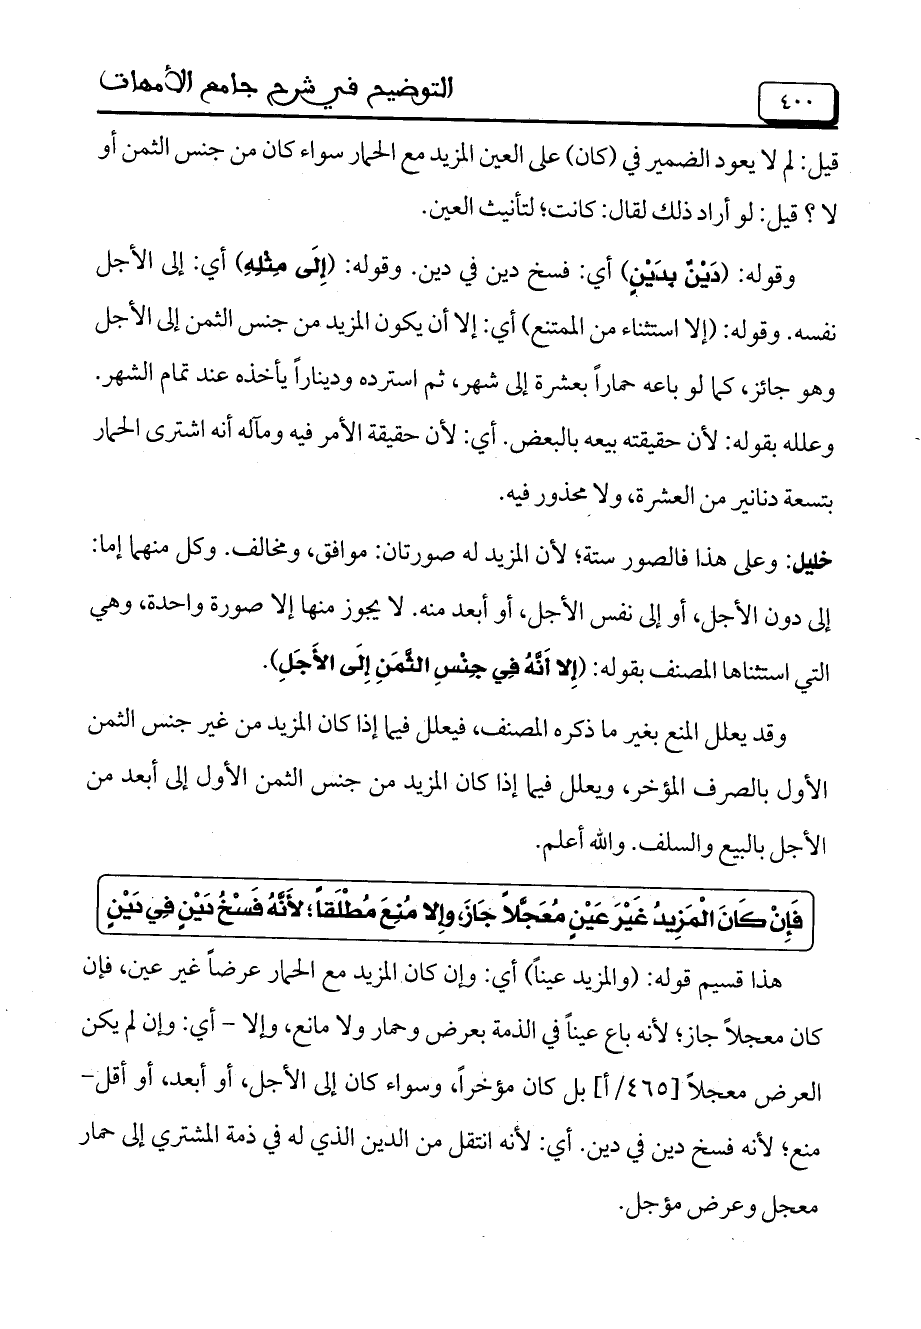 التوضيح في شرح جامع الأمهات
٤٠٠
قيل: لم لا يعود الضمير في (كان) على العين المزيد مع الحمار سواء كان من جنس الثمن أو
لا ؟ قيل: لو أراد ذلك لقال: كانت؛ لتأنيث العين.
وقوله: (دَيْنٌ بِدَيْنٍ) أي: فسخ دين في دين. وقوله: (إِلَى مِثْلِهِ) أي: إلى الأجل
نفسه. وقوله: (إلا استثناء من الممتنع) أي: إلا أن يكون المزيد من جنس الثمن إلى الأجل
وهو جائز، كما لو باعه حماراً بعشرة إلى شهر، ثم استرده وديناراً يأخذه عند تمام الشهر.
وعلله بقوله: لأن حقيقته بيعه بالبعض. أي: لأن حقيقة الأمر فيه ومآله أنه اشترى الحمار
بتسعة دنانير من العشرة، ولا محذور فيه.
خليل: وعلى هذا فالصور ستة؛ لأن المزيد له صورتان: موافق، ومخالف. وكل منهما إما:
إلى دون الأجل، أو إلى نفس الأجل، أو أبعد منه. لا يجوز منها إلا صورة واحدة، وهي
التي استثناها المصنف بقوله: (إِلا أَنَّهُ فِي جِنْسِ الثَّمَنِ إِلَى الأَجَلِ).
وقد يعلل المنع بغير ما ذكره المصنف، فيعلل فيما إذا كان المزيد من غير جنس الثمن
الأول بالصرف المؤخر، ويعلل فيما إذا كان المزيد من جنس الثمن الأول إلى أبعد من
الأجل بالبيع والسلف. والله أعلم.
فَإِنْ كَانَ الْمَزِيدُ غَيْرَ عَيْنٍ مُعَجَّلاً جَازَ، وإلا مُنِعَ مُطْلَقاً؛ لأَنَّهُ فَسْخُ دَيْنٍ فِي دَيْنٍ
هذا قسيم قوله: (والمزيد عيناً) أي: وإن كان المزيد مع الحمار عرضاً غير عين، فإن
كان معجلاً جاز؛ لأنه باع عيناً في الذمة بعرض وحمار ولا مانع، وإلا – أي: وإن لم يكن
العرض معجلاً [٤٦٥/ أ] بل كان مؤخراً، وسواء كان إلى الأجل، أو أبعد، أو أقل–
منع؛ لأنه فسخ دين في دين. أي: لأنه انتقل من الدين الذي له في ذمة المشتري إلى حمار
معجل وعرض مؤجل.